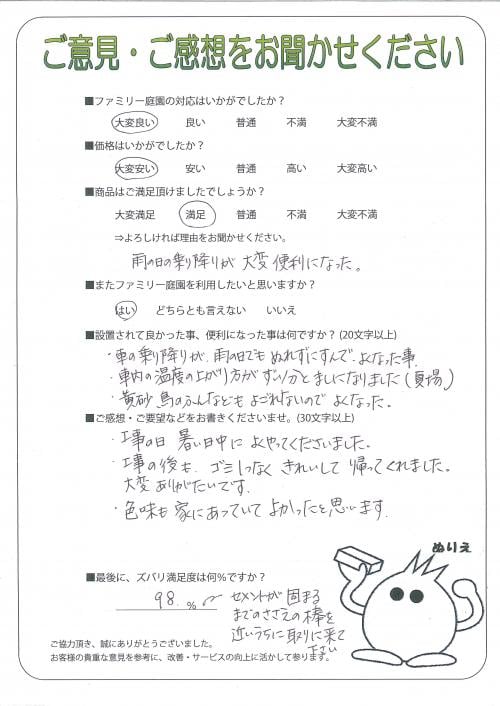 ご意見・ご感想をお聞かせください
■ファミリー庭園の対応はいかがでしたか？
大変良い 良い 普通 不満 大変不満
■価格はいかがでしたか？
大変安い 安い 普通 高い 大変高い
■商品はご満足頂けましたでしょうか？
大変満足 満足 普通 不満 大変不満
⇒よろしければ理由をお聞かせください。
雨の日の乗り降りが 大変 便利になった。
■またファミリー庭園を利用したいと思いますか？
はい どちらとも言えない いいえ
■設置されて良かった事、便利になった事は何ですか？(20文字以上)
・車の乗り降りが、雨の日でも ぬれずにすんで、よくなった事
・車内の温度の上がり方が ずい分と ましになりました(夏場)
・黄砂 鳥のふんなども よごれないので よくなった。
■ご感想・ご要望などをお書きくださいませ。(30文字以上)
・工事の日 暑い日中に よくやってくださいました。
・工事の後も、ゴミ一つなく きれいにして 帰ってくれました。
大変 ありがたいです。
・色味も 家にあっていて よかったと思います。
ぬりえ
■最後に、ズバリ満足度は何％ですか？
98. ％
セメントが 固まる
までのささえの棒を
近いうちに取りに来て
下さい
ご協力頂き、誠にありがとうございました。
お客様の貴重な意見を参考に、改善・サービスの向上に活かして参ります。